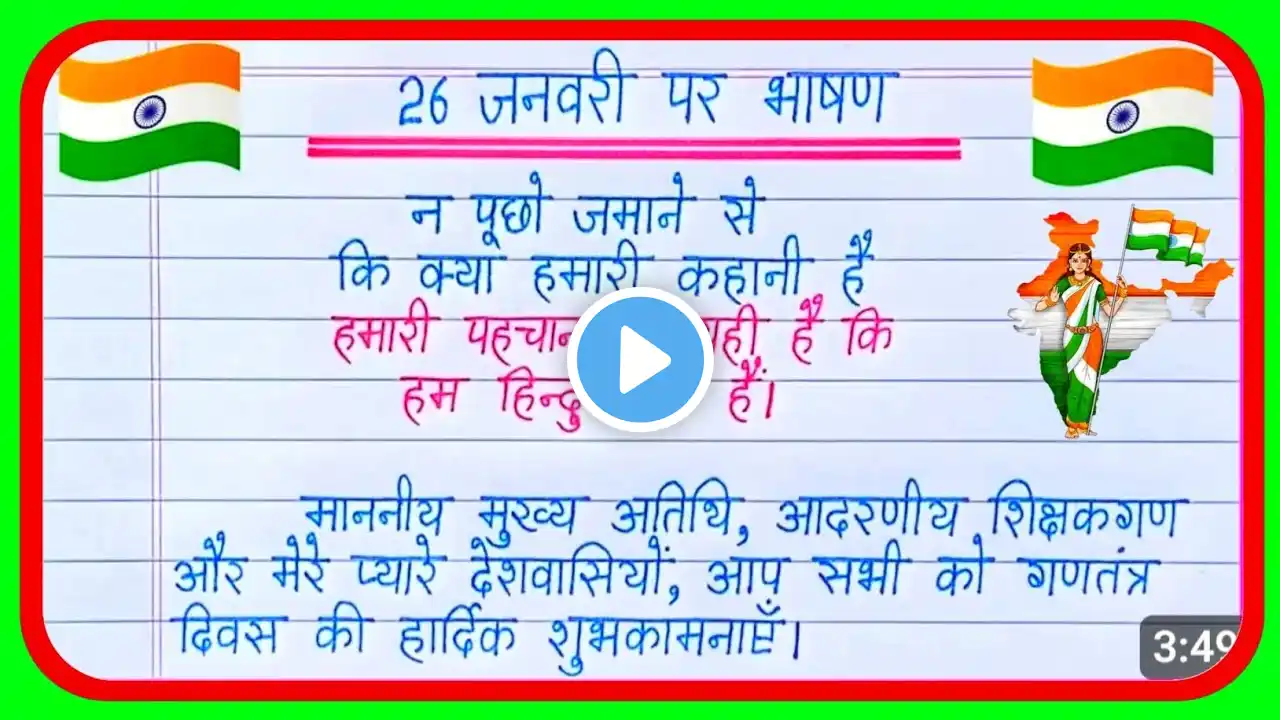 26 जनवरी पर भाषण
न पूछो जमाने से
कि क्या हमारी कहानी है
हमारी पहचान है कि
हम हैं।
माननीय मुख्य अतिथि, आदरणीय शिक्षकगण
और मेरे प्यारे देशवासियों, आप सभी को गणतंत्र
दिवस की हार्दिक शुभकामनाएँ।
3:49